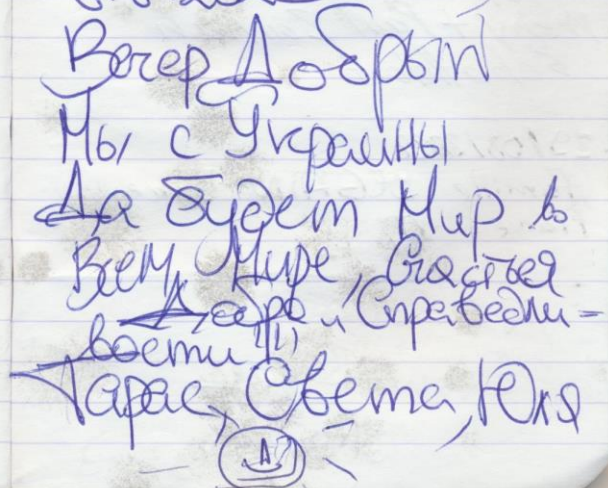 Вечер Добрый
Мы с Украины
Да будет Мир во
Всем Мире, Счастья
Добра и Справедли-
вости!!!
Тарас, Света, Юля